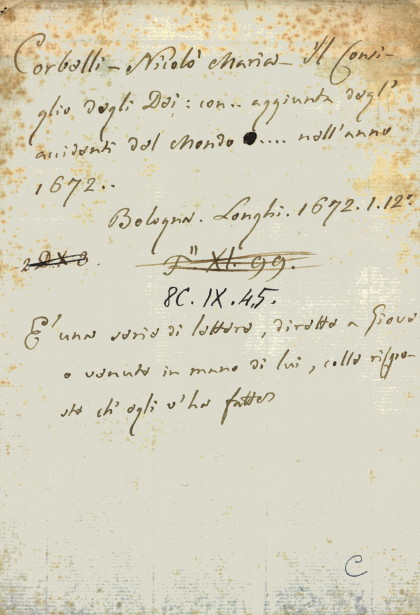 Corbelli - Nicolò Maria - Il Consi-
glio degli Dei: con.. aggiunta degl'
accidenti del Mondo .... nell'anno
1672..
Bologna. Longhi. 1672. 1. 12°
2 D X 3.
F" XI. 99.
8C. IX. 45.
E' una serie di lettere, dirette a Giove
o venute in mano di lui, colle rispo-
ste ch'egli v'ha fatte
C